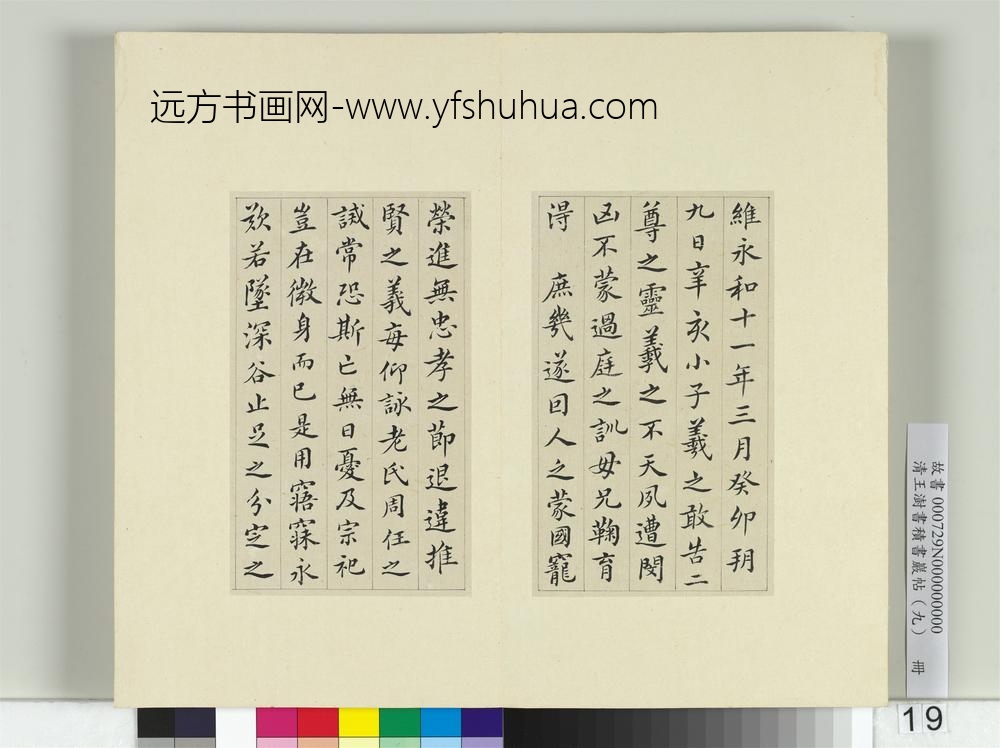 远方书画网-www.yfshuhua.com
維永和十一年三月癸卯朔
九日辛亥小子羲之敢告二
尊之靈羲之不天夙遭閔
凶不蒙過庭之訓母兄鞠育
得 庶幾遂因人之蒙國寵
榮進無忠孝之節退違推
賢之義每仰詠老氏周任之
誡常恐斯亡無日憂及宗祀
豈在微身而已是用寤寐永
歎若墜深谷止足之分定之
故書 000729N000000000
清王澍書積書巖帖（九） 冊
19